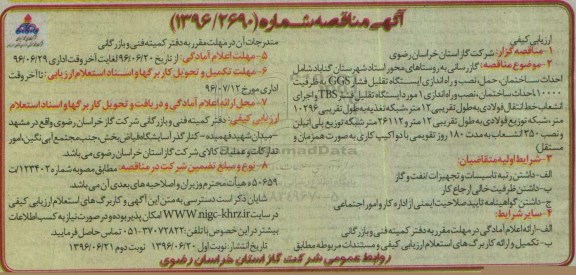 آگهی مناقصه شماره (۱۳۹۶/۲۶۹۰)
ارزیابی کیفی
۱- مناقصه گزار: شرکت گاز استان خراسان رضوی
۲- موضوع مناقصه: گازرسانی به روستاهای محور استاد شهرستان گناباد شامل
احداث ساختمان، حمل، نصب و راه اندازی ایستگاه تقلیل فشار CGS به ظرفیت
۱۰۰۰۰، احداث ساختمان، حمل، نصب و راه اندازی ۱ مورد ایستگاه تقلیل فشار TBS و اجرای
انشعاب خط انتقال فولادی به طول تقریبی ۱۲ متر و شبکه تغذیه به طول تقریبی ۱۰۲۹۶
متر، شبکه توزیع فولادی به طول تقریبی ۱۲ متر و ۲۶۱۱۲ متر شبکه توزیع پلی اتیلن
و نصب ۲۵۰ انشعاب به مدت ۱۸۰ روز تقویمی با دو اکیپ کاری به صورت همزمان و
مستقل)
۳- شرایط اولیه متقاضیان:
الف- داشتن رتبه تاسیسات و تجهیزات / نفت و گاز
ب- داشتن ظرفیت خالی ارجاع کار
ج- داشتن گواهینامه تایید صلاحیت ایمنی از اداره کار و امور اجتماعی
۴- سایر شرایط:
الف- ارائه اعلام آمادگی در مهلت مقرر به دفتر کمیته فنی و بازرگانی
ب- تکمیل و ارائه کاربرگ های استعلام ارزیابی کیفی و مستندات مربوطه مطابق
مندرجات آن در مهلت مقرر به دفتر کمیته فنی و بازرگانی
۵- مهلت اعلام آمادگی: از تاریخ ۹۶/۰۶/۲۰ لغایت آخر وقت اداری ۹۶/۰۶/۲۹
۶- مهلت تکمیل و تحویل کاربرگها و اسناد استعلام ارزیابی: تا آخر وقت
اداری مورخ ۹۶/۰۷/۱۲
۷- محل ارائه اعلام آمادگی و دریافت و تحویل کاربرگها و اسناد استعلام
ارزیابی کیفی: دفتر کمیته فنی و بازرگانی شرکت گاز خراسان رضوی واقع در مشهد
- میدان شهید فهمیده - کنار گذر آسایشگاه فیاض بخش، جنب مجتمع آبی نگین، امور
تدارکات و عملیات کالای شرکت گاز استان خراسان رضوی می باشد.
۸- نوع و مبلغ تضمین شرکت در مناقصه: مطابق مصوبه شماره ۱۲۳۴۰۲/ت
۵۰۶۵۹ه هیأت محترم وزیران و اصلاحیه های بعدی آن می باشد.
شایان ذکر است دسترسی به متن این آگهی و کاربرگ های استعلام ارزیابی کیفی
در سایت WWW.nigc-khrz.ir امکان پذیر بوده و در صورت نیاز به کسب اطلاعات
بیشتر در این خصوص با تلفن: ۳۷۰۷۲۸۲۲-۰۵۱ تماس حاصل فرمایید.
تاریخ انتشار: نوبت اول ۱۳۹۶/۰۶/۲۰ نوبت دوم ۱۳۹۶/۰۶/۲۱
روابط عمومی شرکت گاز استان خراسان رضوی